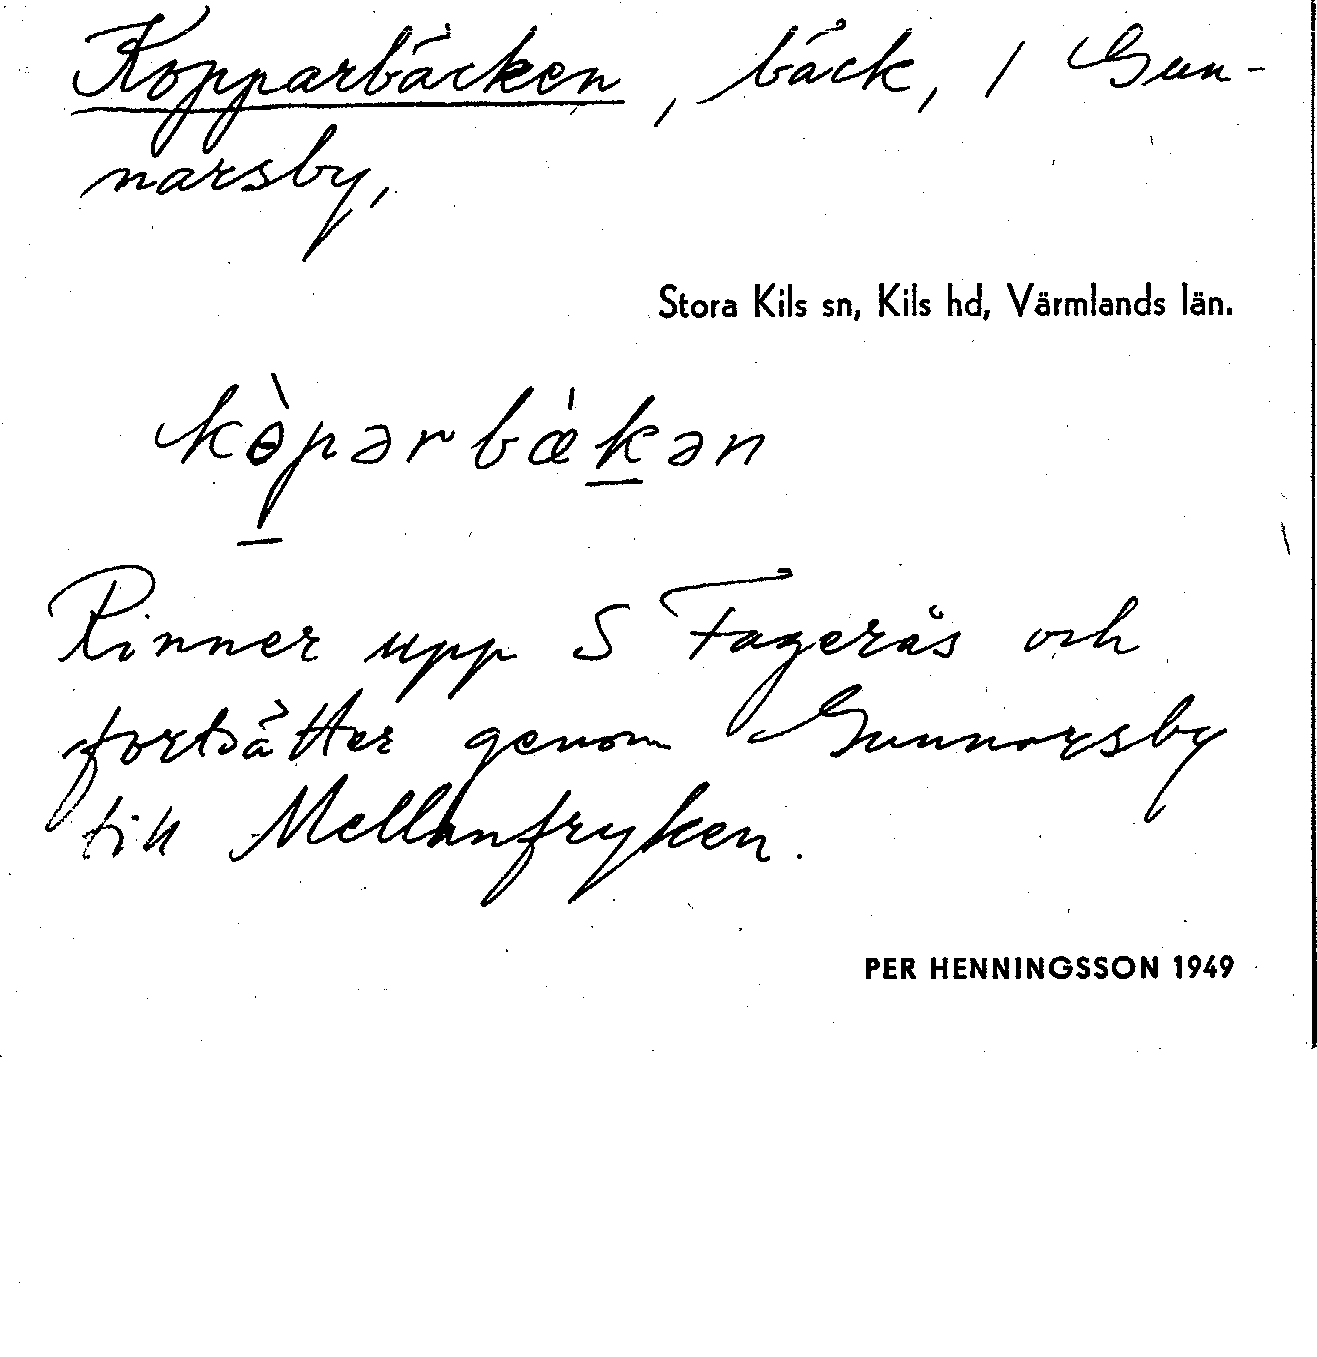 Kopparbäcken, bäck, / Gun-
narsby,
Stora Kils sn, Kils hd, Värmlands län.
kɵ̀pərbæ̀kən
Rinner upp S Fagerås och
fortsätter genom Gunnarsby
till Mellanfryken.
PER HENNINGSSON 1949